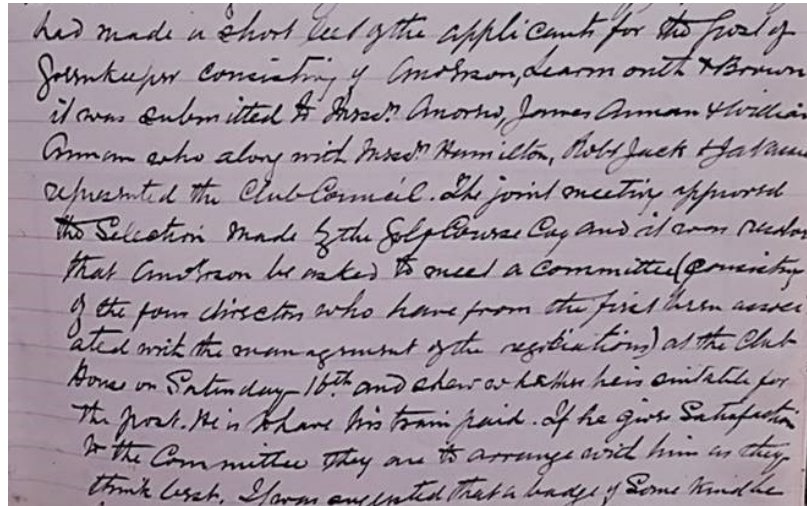 had made a short leet of the applicants for the post of
Greenkeeper consisting of Anderson, Learmonth & Brown
it was submitted to Messrs Andrew, James Annan & William
Annan who along with Messrs Hamilton, Robt Jack &
represented the Club Council. The joint meeting approved
the Selection made by the Golf Course Coy and it was resolv
that Anderson be asked to meet a committee (consisting
of the four directors who have from the first been associ
ated with the management of the negotiations) at the Club
House on Saturday 16th and shew whether he is suitable for
the post. He is to have his train paid. If he gives Satisfaction
to the Committee they are to arrange with him as they
think best. It was suggested that a badge of Some kind be